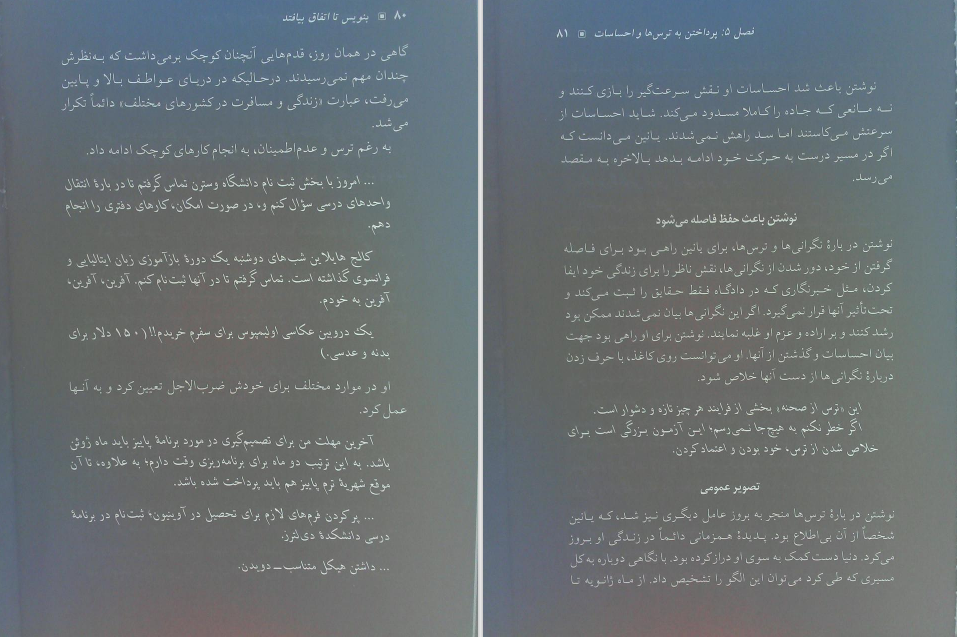 ۸۰ ▣ بنویس تا اتفاق بیافتد
گاهی در همان روز، قدم‌هایی آنچنان کوچک برمی‌داشت که به‌نظرش
چندان مهم نمی‌رسیدند. درحالیکه در دریای عواطف بالا و پایین
می‌رفت، عبارت «زندگی و مسافرت در کشورهای مختلف» دائماً تکرار
می‌شد.
به رغم ترس و عدم‌اطمینان، به انجام کارهای کوچک ادامه داد.
... امروز با بخش ثبت نام دانشگاه وسترن تماس گرفتم تا در بارهٔ انتقال
واحدهای درسی سؤال کنم و، در صورت امکان، کارهای دفتری را انجام
دهم.
کالج هایلاین شب‌های دوشنبه یک دورهٔ بازآموزی زبان ایتالیایی و
فرانسوی گذاشته است. تماس گرفتم تا در آنها ثبت‌نام کنم. آفرین، آفرین،
آفرین به خودم.
یک دروبین عکاسی اولیمپوس برای سفرم خریدم!! (۱۵۰ دلار برای
بدنه و عدسی.)
او در موارد مختلف برای خودش ضرب‌الاجل تعیین کرد و به آنها
عمل کرد.
آخرین مهلت من برای تصمیم‌گیری در مورد برنامهٔ پاییز باید ماه ژوئن
باشد. به این ترتیب دو ماه برای برنامه‌ریزی وقت دارم؛ به علاوه، تا آن
موقع شهریهٔ ترم پاییز هم باید پرداخت شده باشد.
... پر کردن فرم‌های لازم برای تحصیل در آوینیون؛ ثبت‌نام در برنامهٔ
درسی دانشکدهٔ دی‌لترز.
... داشتن هیکل متناسب ــ دویدن.
فصل ۵: پرداختن به ترس‌ها و احساسات ▣ ۸۱
نوشتن باعث شد احساسات او نقش سرعت‌گیر را بازی کنند و
نه مانعی که جاده را کاملا مسدود می‌کند. شاید احساسات از
سرعتش می‌کاستند اما سد راهش نمی‌شدند. یانین می‌دانست که
اگر در مسیر درست به حرکت خود ادامه بدهد بالاخره به مقصد
می‌رسد.
نوشتن باعث حفظ فاصله می‌شود
نوشتن در بارهٔ نگرانی‌ها و ترس‌ها، برای یانین راهی بود برای فاصله
گرفتن از خود، دور شدن از نگرانی‌ها، نقش ناظر را برای زندگی خود ایفا
کردن، مثل خبرنگاری که در دادگاه فقط حقایق را ثبت می‌کند و
تحت‌تأثیر آنها قرار نمی‌گیرد. اگر این نگرانی‌ها بیان نمی‌شدند ممکن بود
رشد کنند و بر اراده و عزم او غلبه نمایند. نوشتن برای او راهی بود جهت
بیان احساسات و گذشتن از آنها. او می‌توانست روی کاغذ، با حرف زدن
دربارهٔ نگرانی‌ها از دست آنها خلاص شود.
این «ترس از صحنه» بخشی از فرایند هر چیز تازه و دشوار است.
اگر خطر نکنم به هیچ‌جا نمی‌رسم؛ این آزمون بزرگی است برای
خلاص شدن از ترس، خود بودن و اعتماد کردن.
تصویر عمومی
نوشتن در بارهٔ ترس‌ها منجر به بروز عامل دیگری نیز شد، که یانین
شخصاً از آن بی‌اطلاع بود. پدیدهٔ همزمانی دائماً در زندگی او بروز
می‌کرد. دنیا دست کمک به سوی او دراز کرده بود. با نگاهی دوباره به کل
مسیری که طی کرد می‌توان این الگو را تشخیص داد. از ماه ژانویه تا